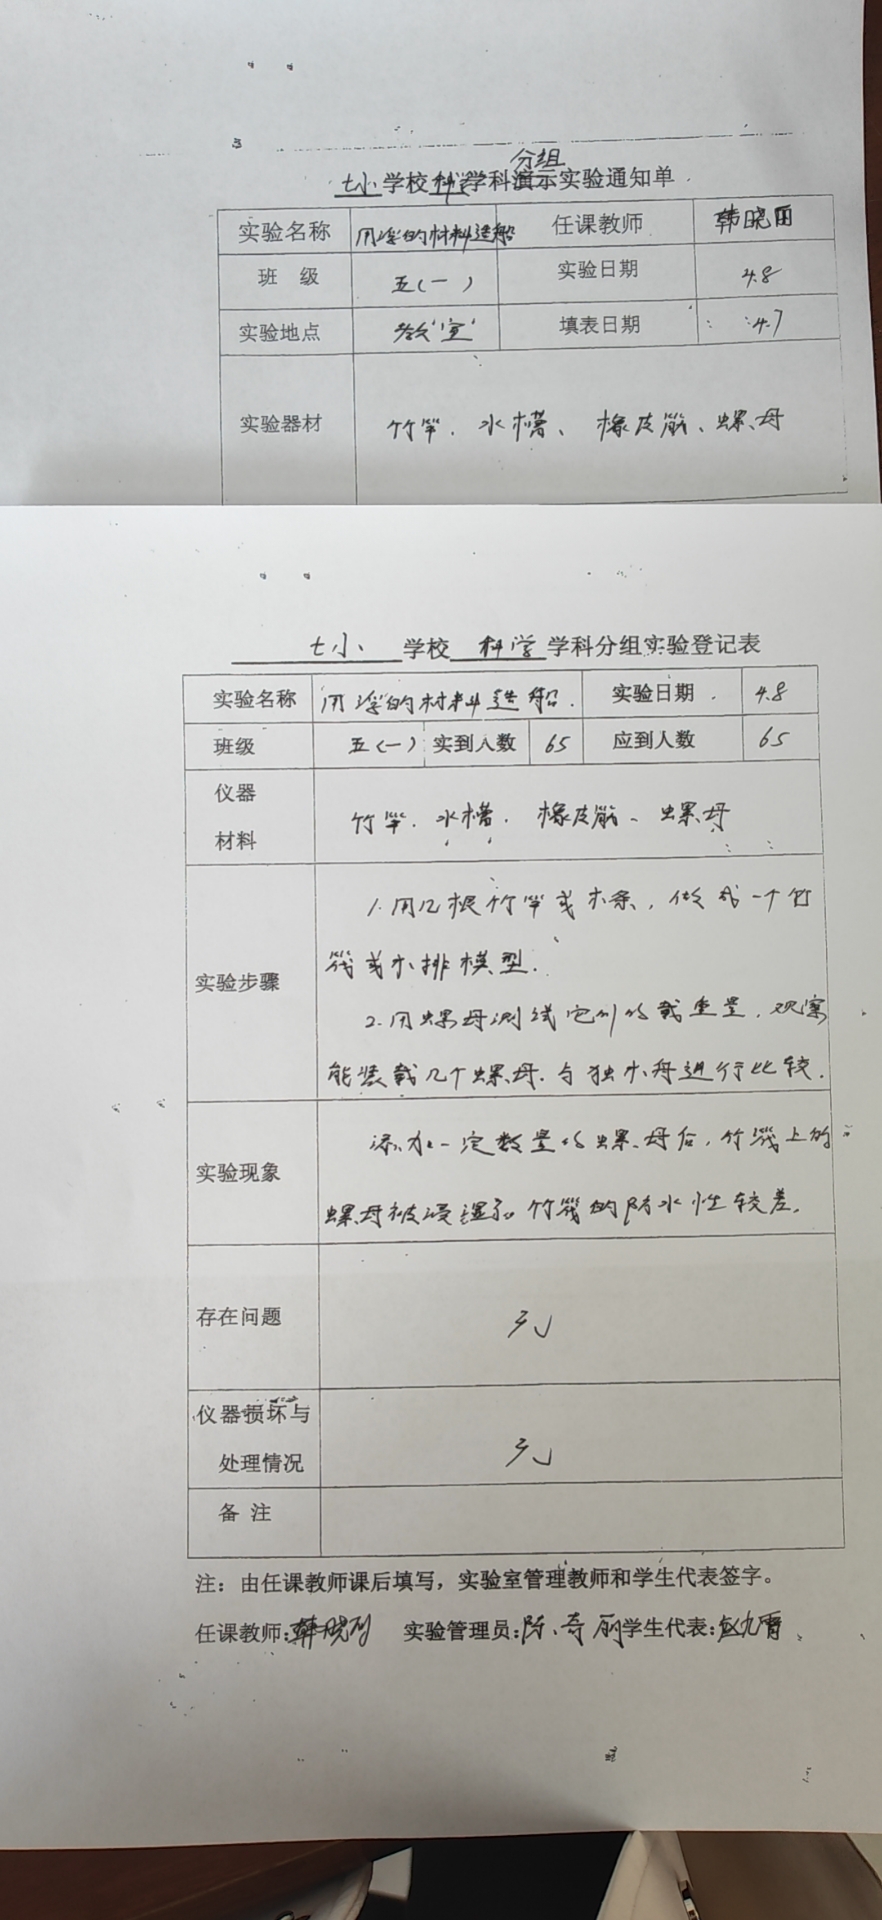 分组
七小学校科学学科演示实验通知单
实验名称 用浮的材料造船 任课教师 韩晓丽
班 级 五(一) 实验日期 4.8
实验地点 教室 填表日期 4.7
实验器材 竹竿、水槽、橡皮筋、螺母
七小 学校 科学 学科分组实验登记表
实验名称 用浮的材料造船. 实验日期 4.8
班级 五(一) 实到人数 65 应到人数 65
仪器
材料
竹竿、水槽、橡皮筋、螺母
1.用几根竹竿或木条,做成一个竹
筏或木排模型.
实验步骤
2.用螺母测试它们的载重量,观察
能装载几个螺母.与独木舟进行比较.
添加一定数量的螺母后,竹筏上的
实验现象
螺母被浸湿了。竹筏的防水性较差.
存在问题 无
仪器损坏与
处理情况
无
备 注
注:由任课教师课后填写,实验室管理教师和学生代表签字。
任课教师:韩晓丽 实验管理员:陈奇丽 学生代表: